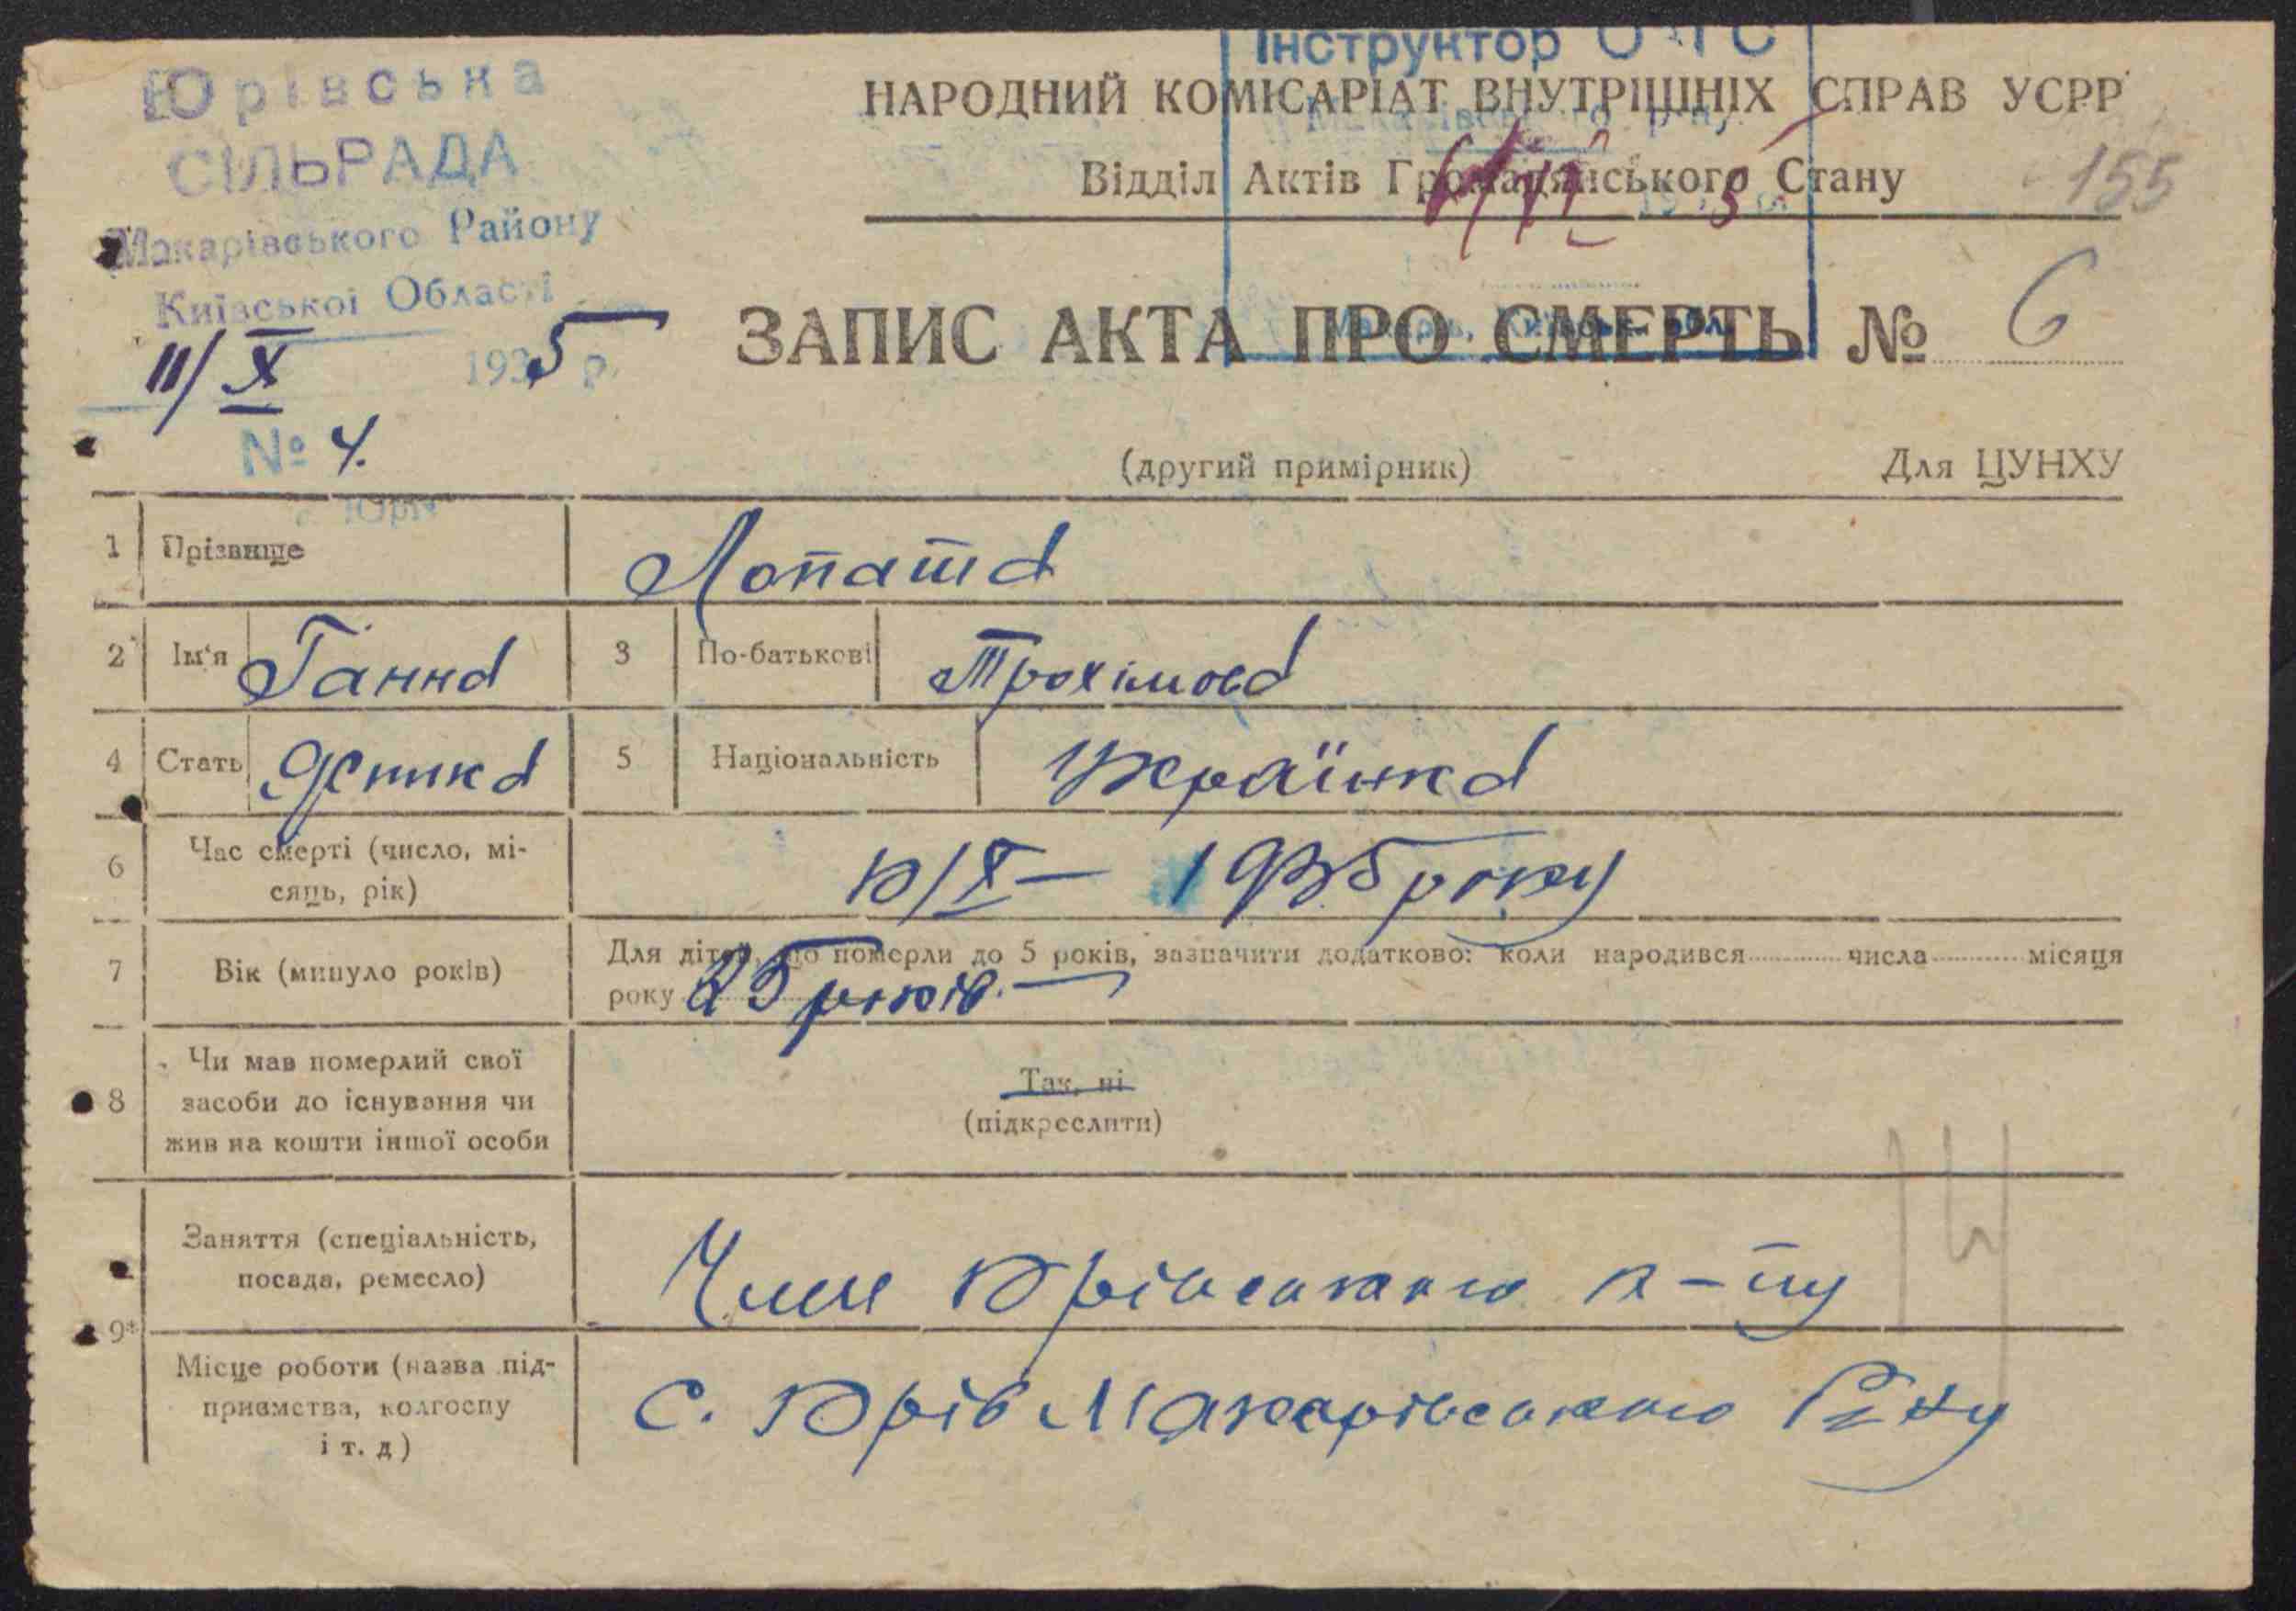 Юрівська
СІЛЬРАДА
Макарівського Району
Київської Області
11/X 1935 р.
№ 4.
Інструктор
НАРОДНИЙ КОМІСАРІАТ ВНУТРІШНІХ СПРАВ УСРР
Відділ Актів Громадянського Стану
155
ЗАПИС АКТА ПРО СМЕРТЬ № 6
(другий примірник) Для ЦУНХУ
1 Прізвище Лопата
2 Ім'я Ганна 3 По-батькові Трохімова
4 Стать Жінка 5 Національність Українка
6 Час смерті (число, мі-
сяць, рік) 10/X — 1935 року
7 Вік (минуло років) Для дітей, що померли до 5 років, зазначити додатково: коли народився числа місяця
року 25 років.
8 Чи мав померлий свої
засоби до існування чи
жив на кошти іншої особи
Так, ні
(підкреслити)
9* Заняття (спеціальність,
посада, ремесло) Член Юрівського к-пу
Місце роботи (назва під-
приємства, колгоспу
і т. д) с. Юрів Макарівського Р-ну